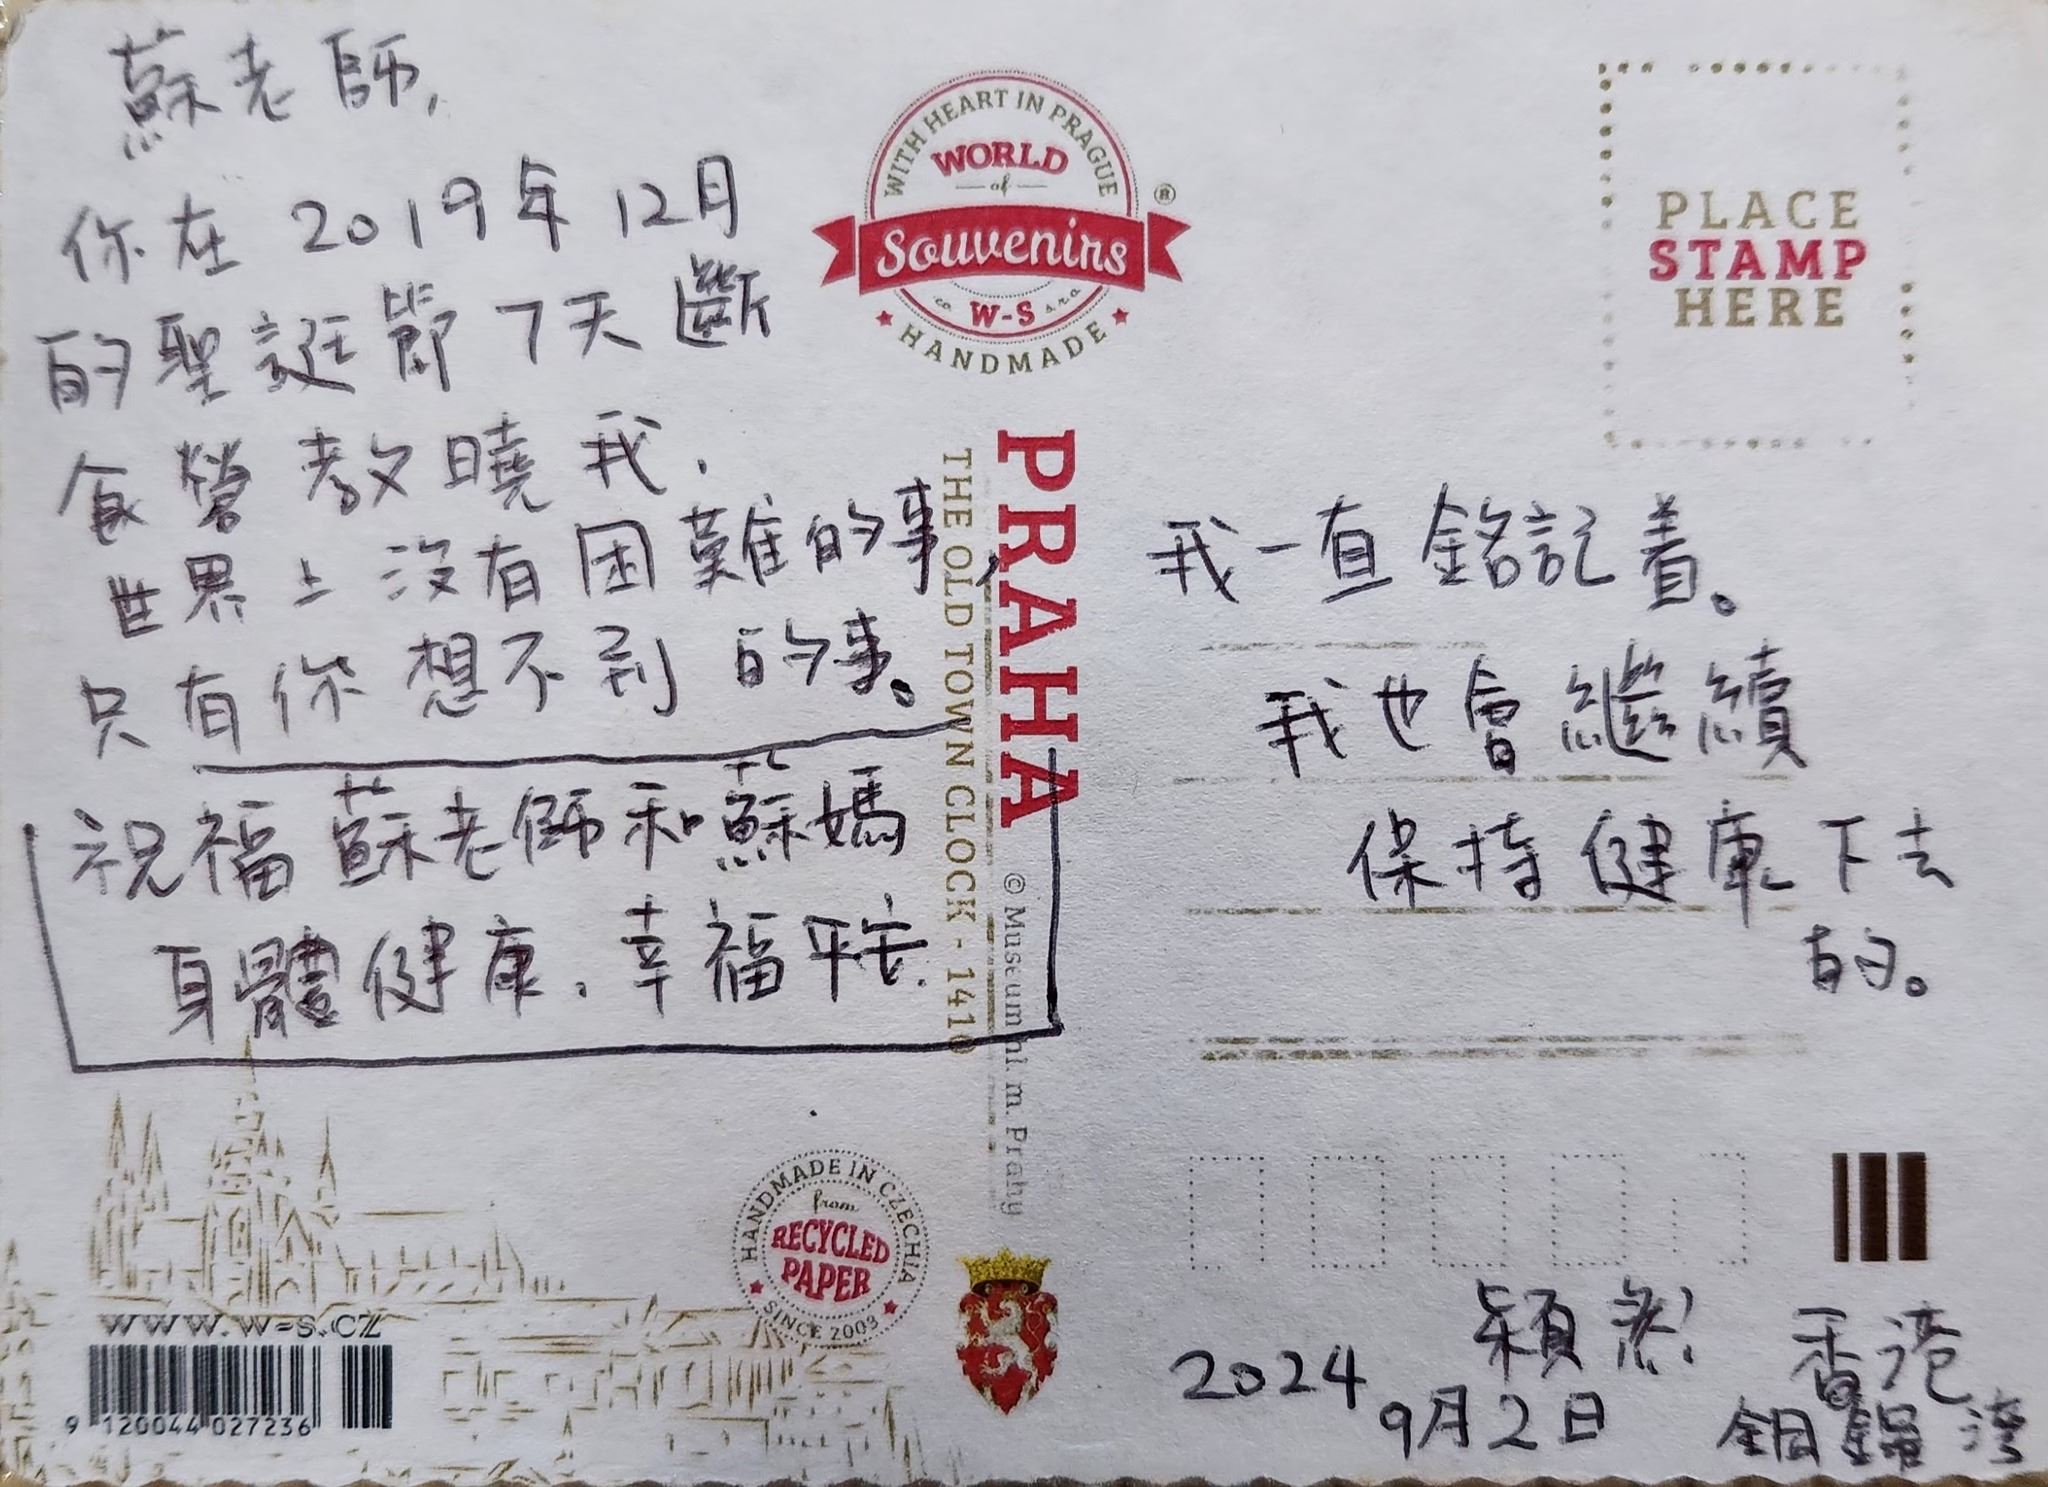 蘇老師,
你在 2019年 12月
的聖誕節 7天斷
食營教曉我,
世界上沒有困難的事,
只有你想不到的事。
祝福蘇老師和蘇媽
身體健康,幸福平安.
WITH HEART IN PRAGUE
WORLD
of
Souvenirs
W-S
HANDMADE
®
PRAHA
THE OLD TOWN CLOCK - 1410
© Museum hl. m. Prahy
PLACE
STAMP
HERE
我一直銘記着。
我也會繼續
保持健康下去
的。
HANDMADE IN CZECHIA
from
RECYCLED
PAPER
SINCE 2003
www.w-s.cz
9 120044 027236
2024
9月2日
香港
銅鑼灣